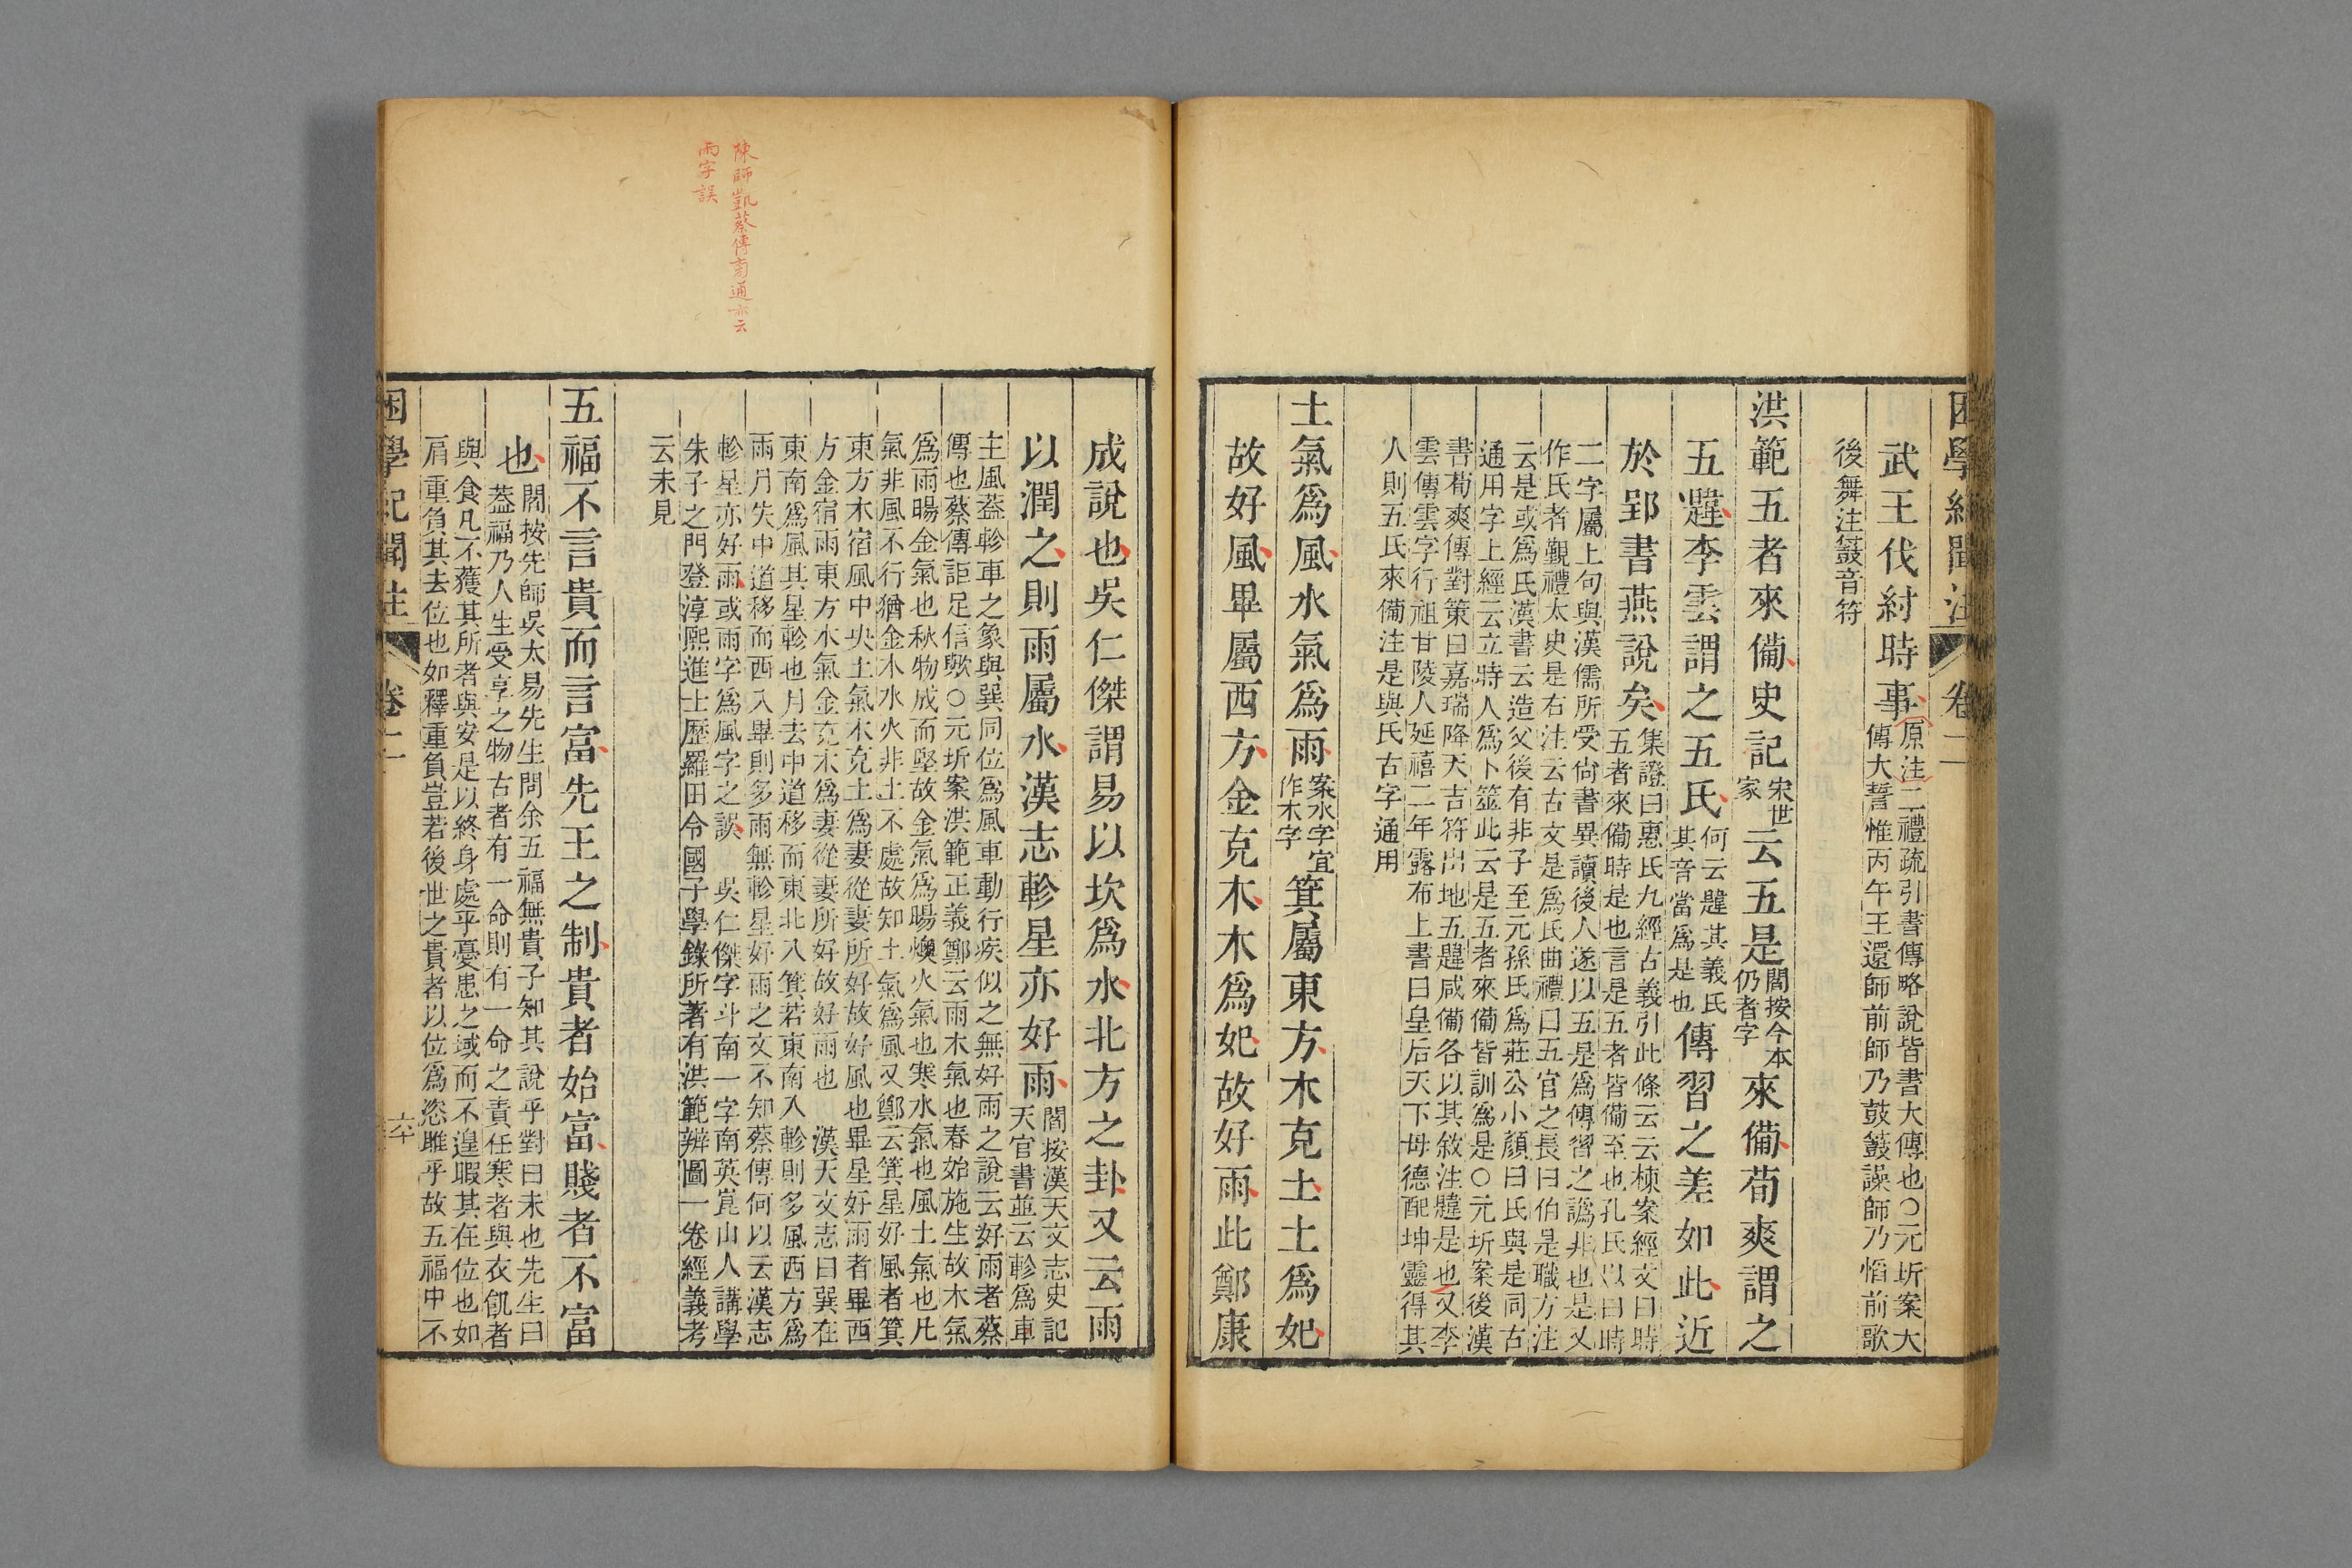 困學紀聞注 卷二
武王伐紂時事原注二禮疏引書傳略說皆書大傳也○元圻案大
傳大誓惟丙午王還師前師乃鼓𥱧譟師乃慆前歌
後舞注𥱧音符
洪範五者來備史記宋世
家云五是閻按今本
仍者字來備荀爽謂之
五韙李雲謂之五氏何云韙其義氏
其音當爲是也傳習之差如此近
於郢書燕說矣集證曰惠氏九經古義引此條云云棟案經文曰時
五者來備時是也言是五者皆備至也孔氏以曰時
二字屬上句與漢儒所受尙書異讀後人遂以五是爲傳習之譌非也是又
作氏者覲禮太史是右注云古文是爲氏曲禮曰五官之長曰伯是職方注
云是或爲氏漢書云造父後有非子至元孫氏爲莊公小顏曰氏與是同古
通用字上經云立時人爲卜筮此云是五者來備皆訓爲是○元圻案後漢
書荀爽傳對策曰嘉瑞降天吉符出地五韙咸備各以其敘注韙是也又李
雲傳雲字行祖甘陵人延禧二年露布上書曰皇后天下母德配坤靈得其
人則五氏來備注是與氏古字通用
土氣爲風水氣爲雨案水字宜
作木字箕屬東方木克土土爲妃
故好風畢屬西方金克木木爲妃故好雨此鄭康
成說也吳仁傑謂易以坎爲水北方之卦又云雨
以潤之則雨屬水漢志軫星亦好雨閻按漢天文志史記
天官書並云軫爲車
主風蓋軫車之象與巽同位爲風車動行疾似之無好雨之說云好雨者蔡
傳也蔡傳詎足信歟○元圻案洪範正義鄭云雨木氣也春始施生故木氣
爲雨暘金氣也秋物成而堅故金氣爲暘燠火氣也寒水氣也風土氣也凡
氣非風不行猶金木水火非土不處故知土氣爲風又鄭云箕星好風者箕
東方木宿風中央土氣木克土爲妻從妻所好故好風也畢星好雨者畢西
方金宿雨東方木氣金克木爲妻從妻所好故好雨也 漢天文志曰巽在
東南爲風其星軫也月去中道移而東北入箕若東南入軫則多風西方爲
雨月失中道移而西入畢則多雨無軫星好雨之文不知蔡傳何以云漢志
軫星亦好雨或雨字爲風字之誤 吳仁傑字斗南一字南英崑山人講學
朱子之門登淳熙進士歷羅田令國子學錄所著有洪範辨圖一卷經義考
云未見
五福不言貴而言富先王之制貴者始富賤者不富
也閻按先師吳太易先生問余五福無貴子知其說乎對曰未也先生曰
蓋福乃人生受享之物古者有一命則有一命之責任寒者與衣飢者
與食凡不獲其所者與安是以終身處乎憂患之域而不遑暇其在位也如
肩重負其去位也如釋重負豈若後世之貴者以位爲恣雎乎故五福中不
困學紀聞注 卷二
陳師凱蔡傳旁通亦云
雨字誤